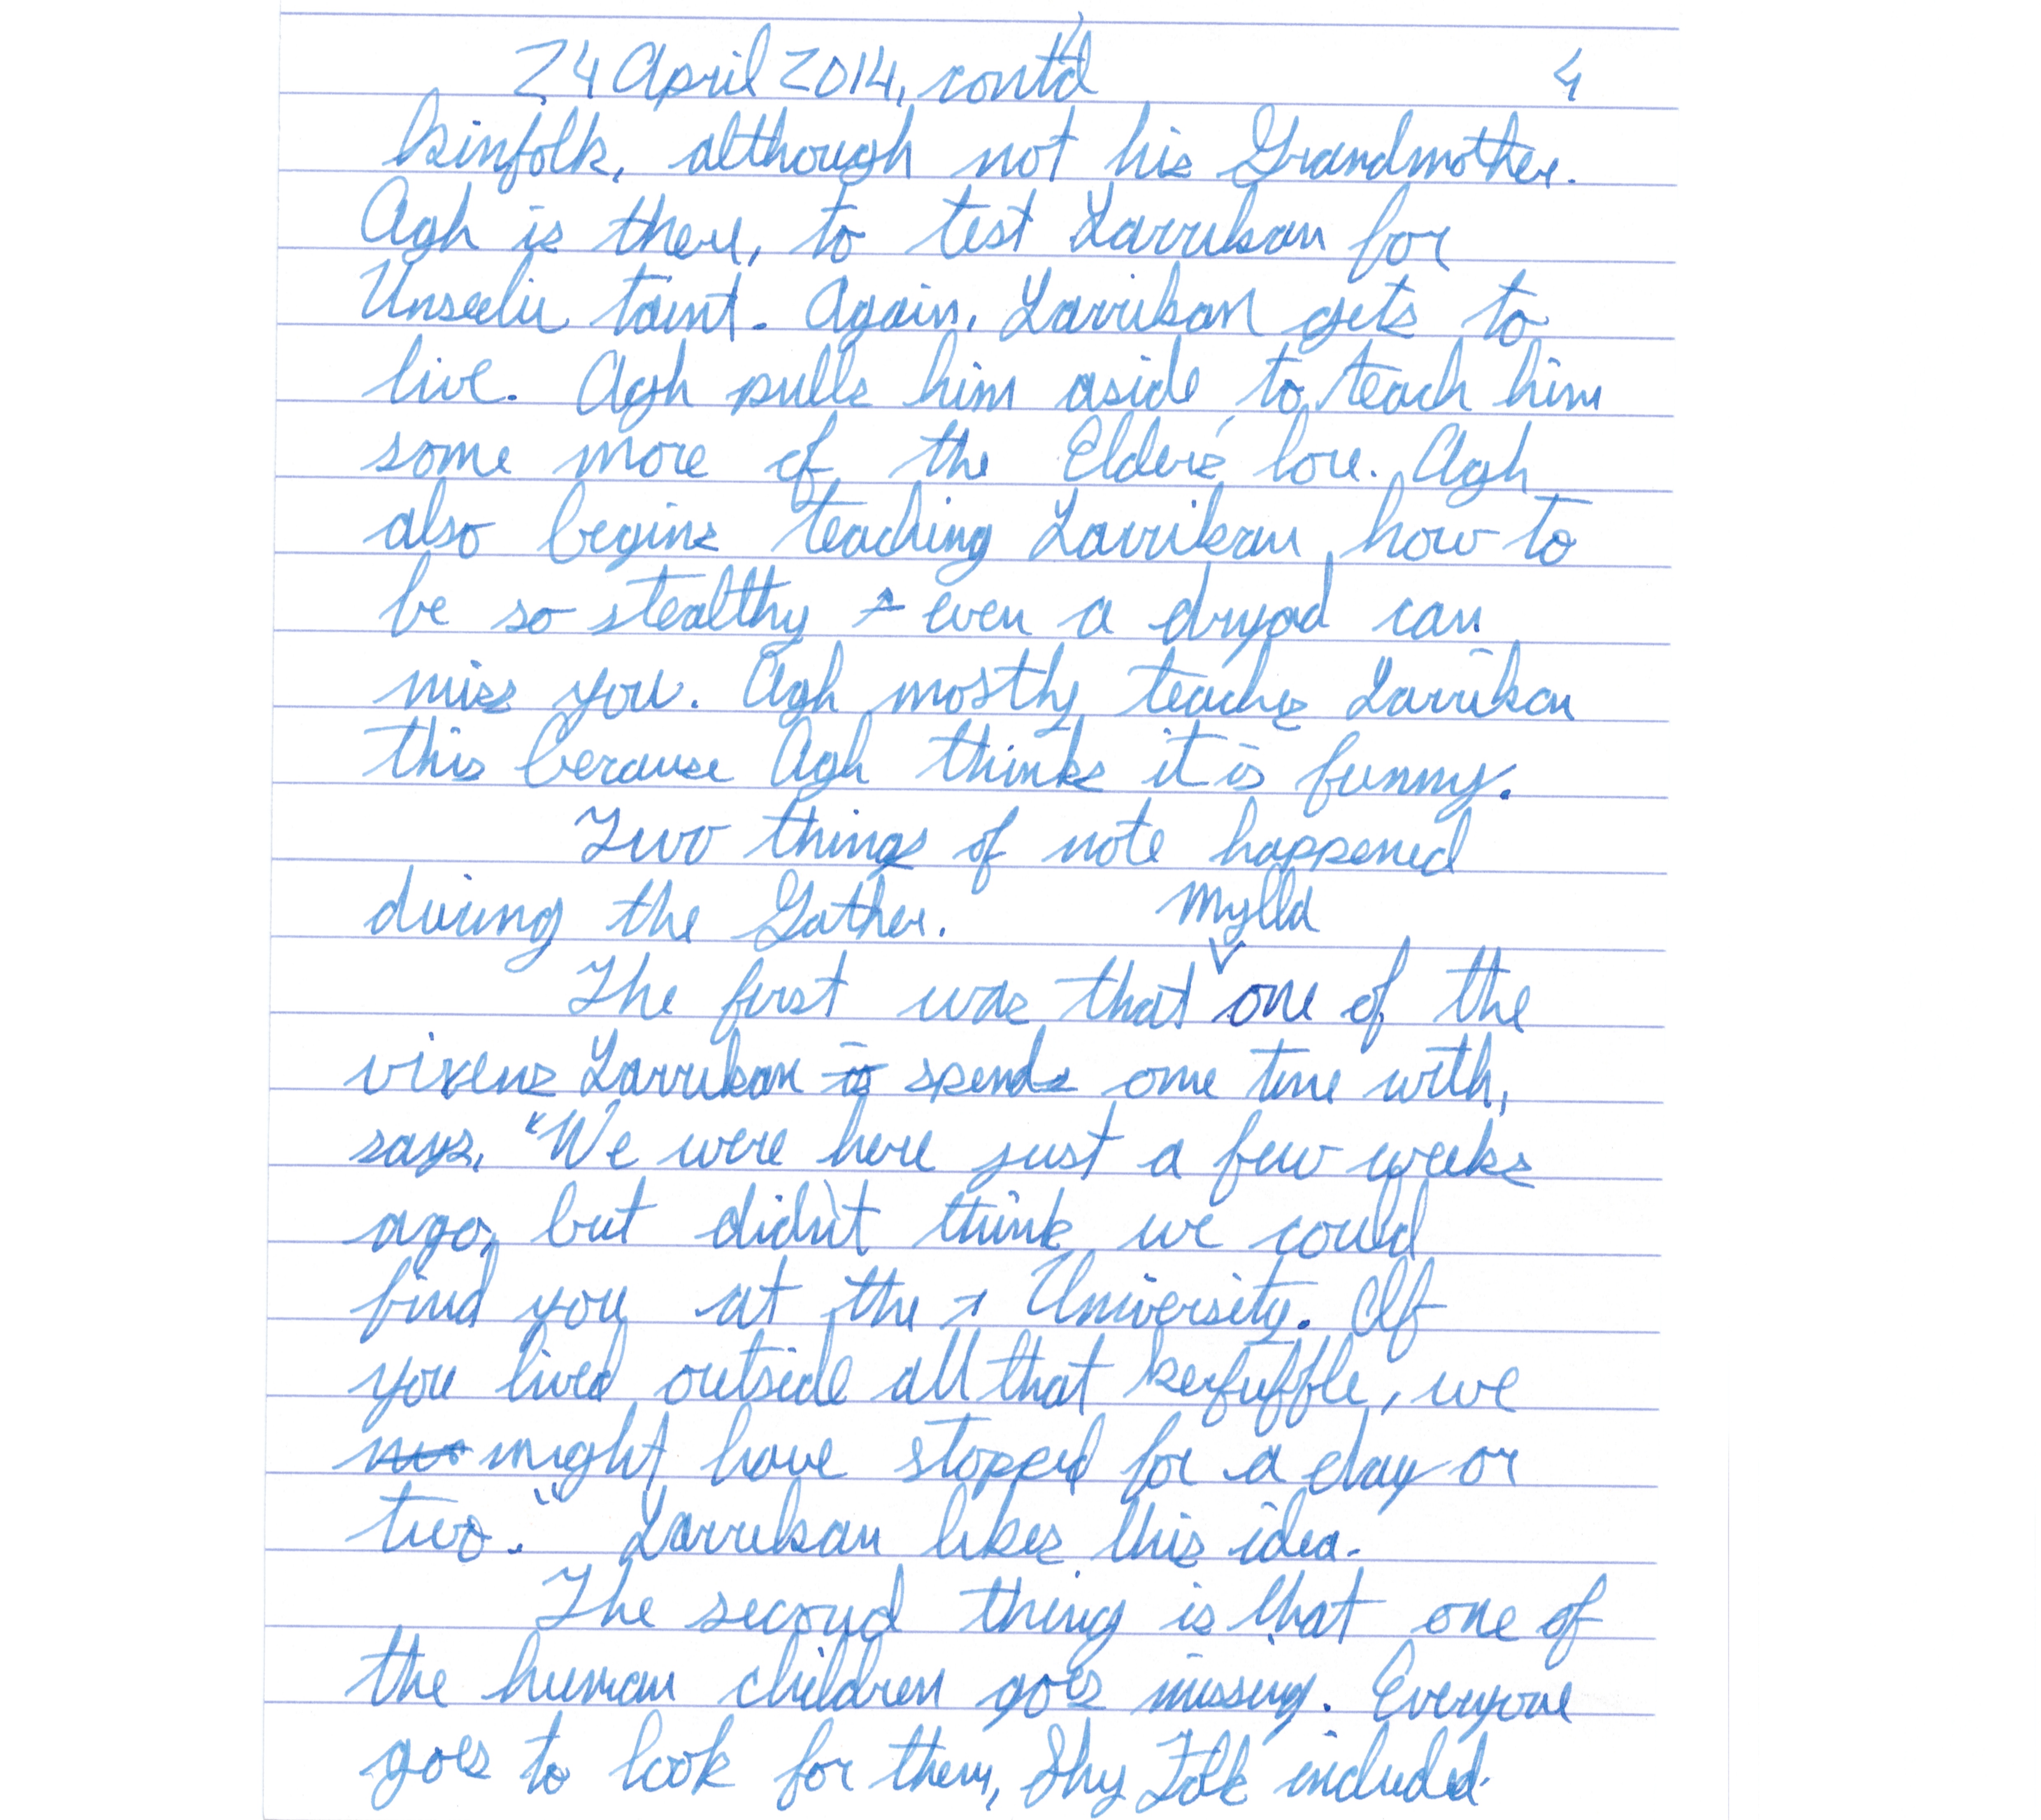 24 April 2014, cont'd 4
kinfolk, although not his Grandmother.
Agh is there, to test Larrikan for
Unseelie taint. Again, Larrikan gets to
live. Agh pulls him aside to teach him
some more of the Elder's lore. Agh
also begins teaching Larrikan how to
be so stealthy even a dryad can
miss you. Agh mostly teaches Larrikan
this because Agh thinks it is funny.
Two things of note happened
during the Gather.
Mylla
The first was that one of the
vixens Larrikan is spends ome time with,
says, "We were here just a few weeks
ago, but didn't think we could
find you at the University. If
you lived outside all that kerfuffle, we
might have stopped for a day or
two." Larrikan likes this idea.
The second thing is that one of
the human children goes missing. Everyone
goes to look for them, Shy Folk included.